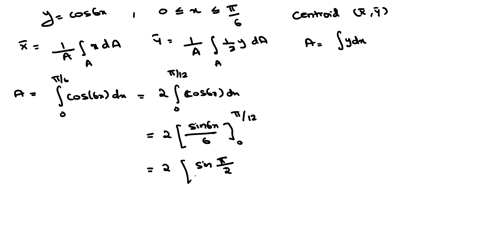 y = cos6x , 0 ≤ x ≤ π/6 Centroid (x̄, ȳ)
x̄ = 1/A ∫_A x dA ȳ = 1/A ∫_A 1/2 y dA A = ∫ y dx
A = ∫_0^{π/6} cos(6x) dx = 2 ∫_0^{π/12} cos(6x) dx
= 2 [ sin6x / 6 ]_0^{π/12}
= 2 [ sin π/2